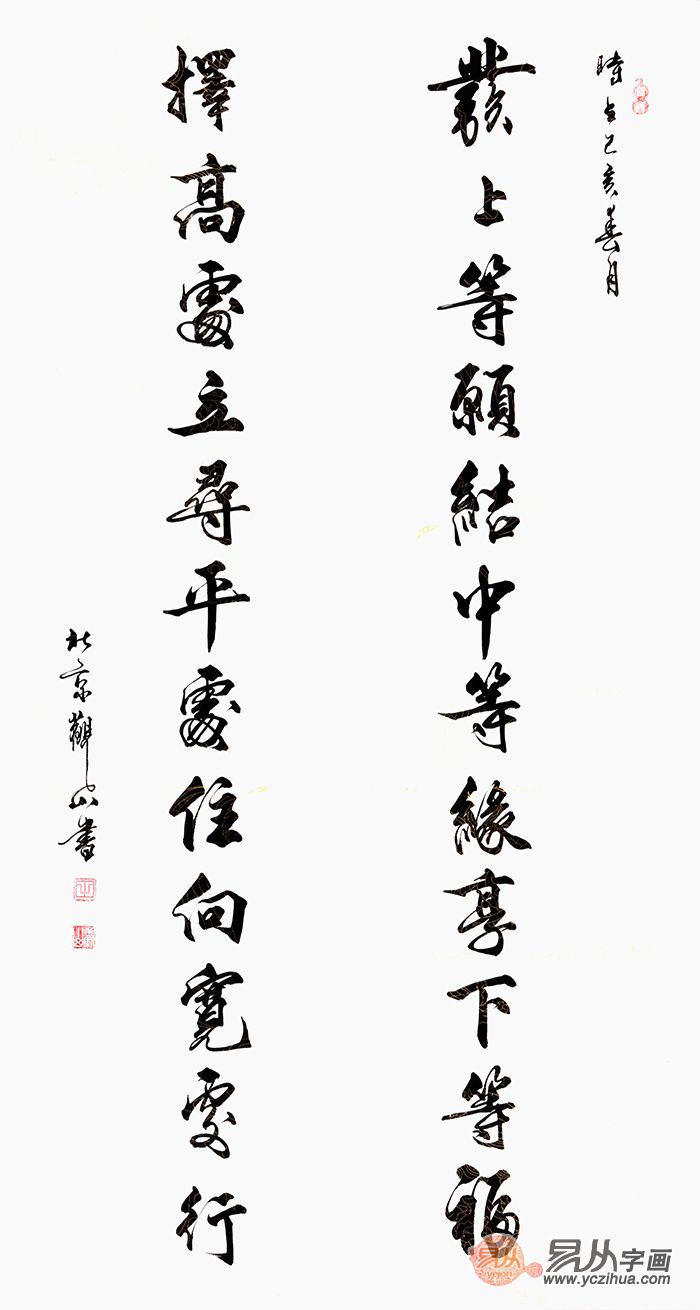 時在己亥春月
發上等願結中等緣享下等福
擇高處立尋平處住向寬處行
北京觀山書
易从字画
www.yczihua.com